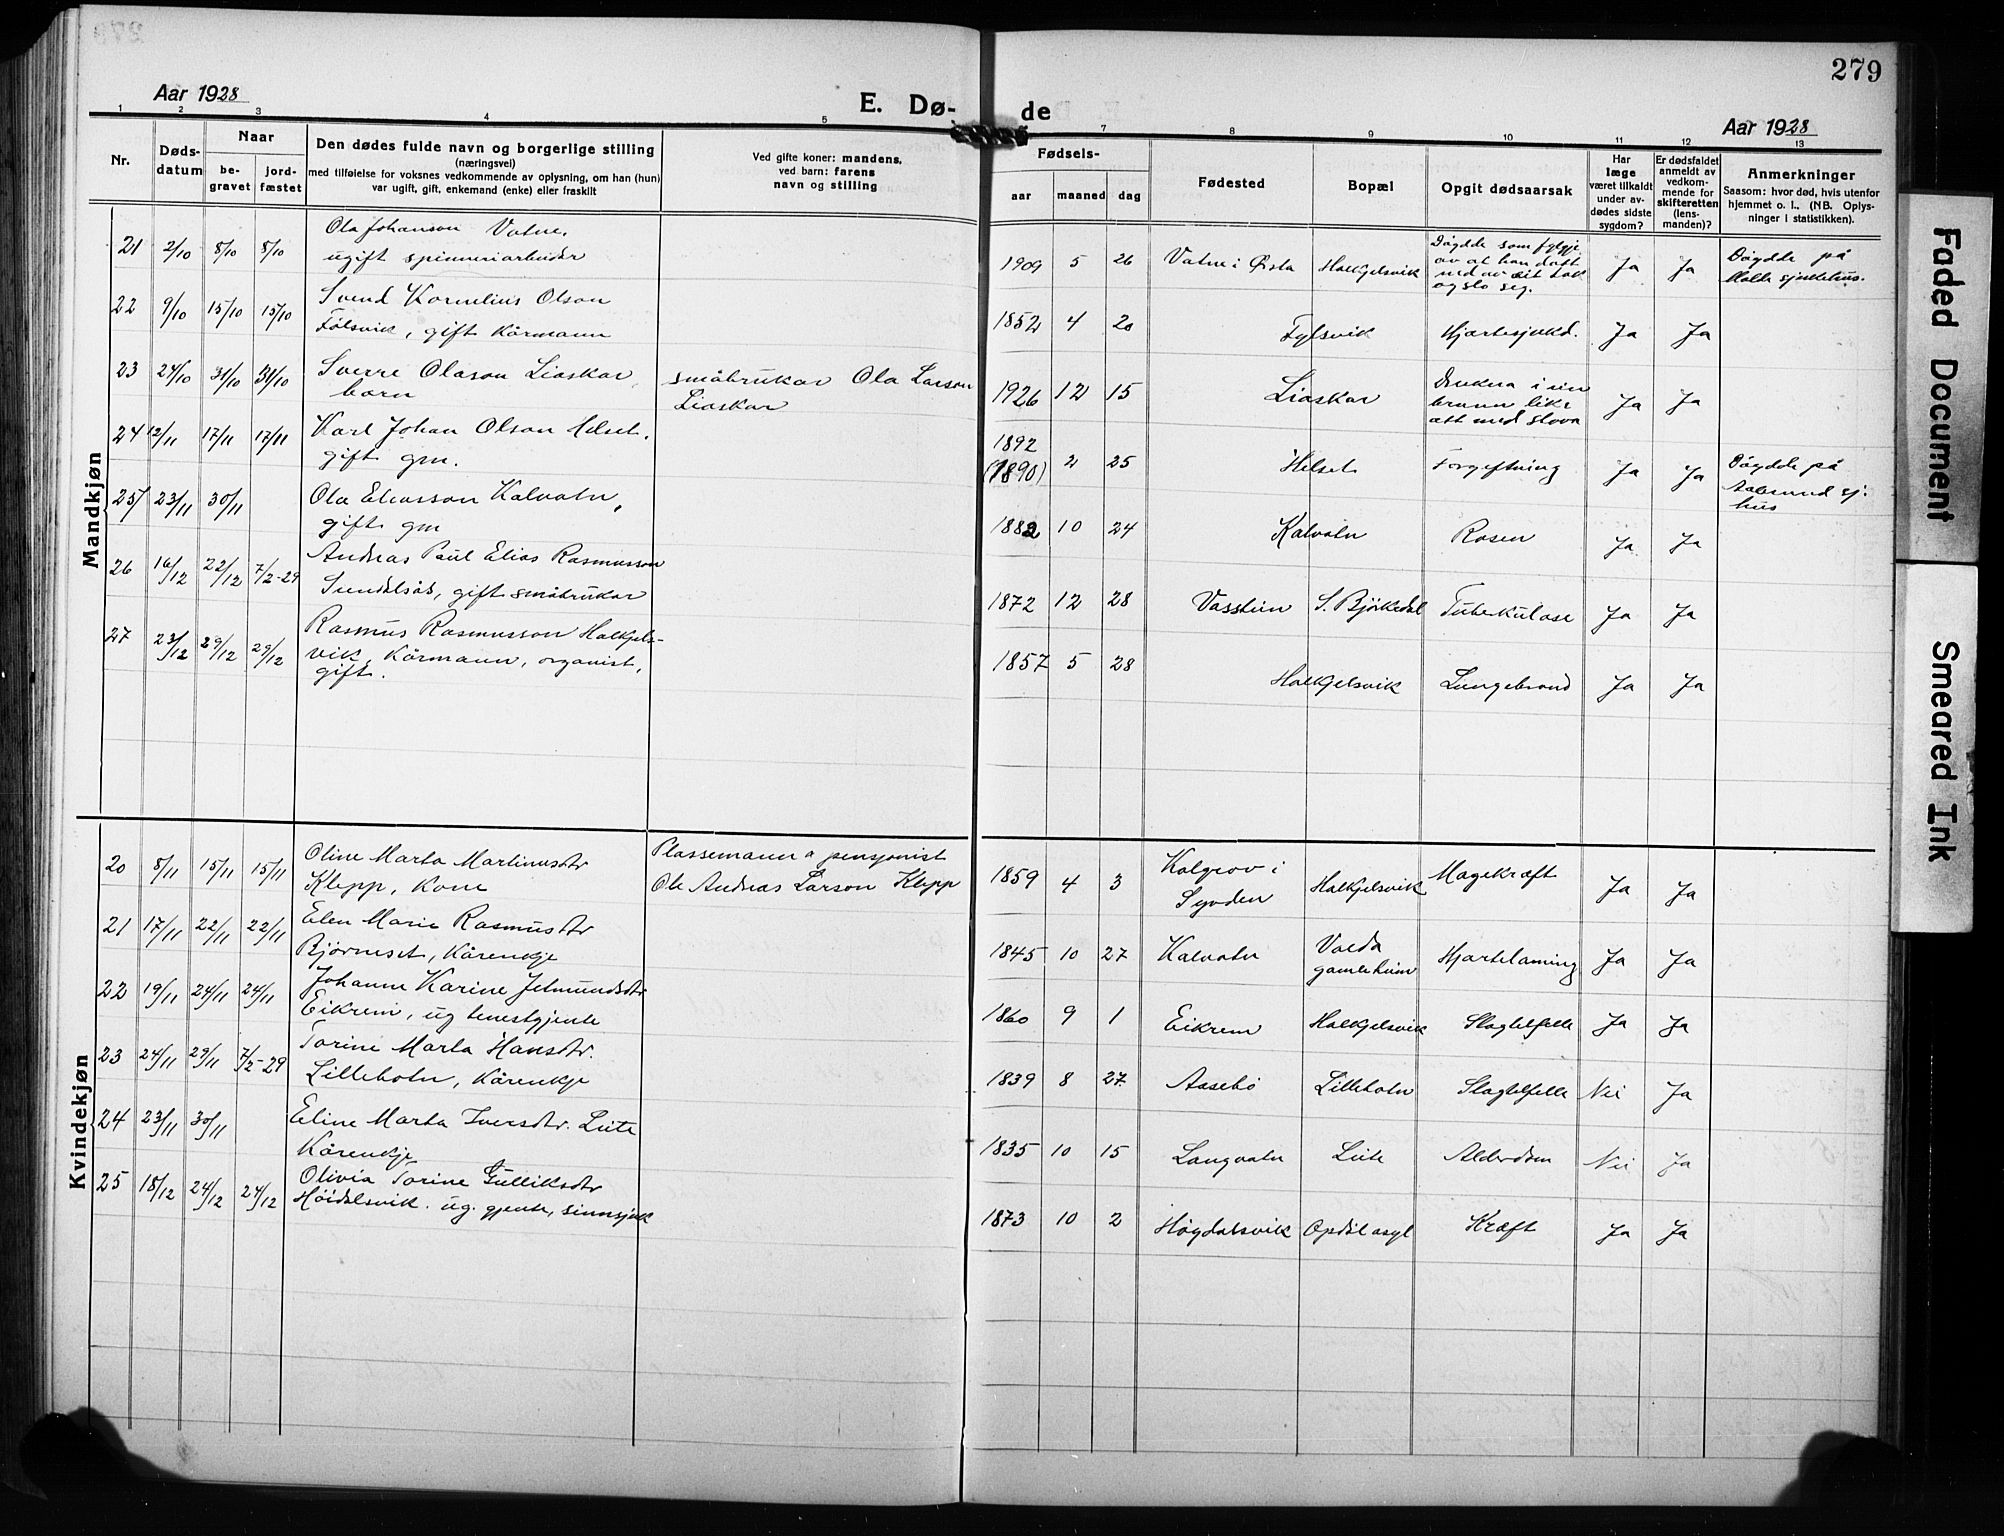 279
Aar 1928
E. Dø-
de
Aar 1928
1 2 3 4 5
7 8 9 10 11 12 13
Nr.
Døds-
datum
Naar
be-
gravet
jord-
fæstet
Den dødes fulde navn og borgerlige stilling
(næringsvei)
med tilføielse for voksnes vedkommende av oplysning, om han (hun)
var ugift, gift, enkemand (enke) eller fraskilt
Ved gifte koner: mandens,
ved barn: farens
navn og stilling
Fødsels-
aar maaned dag
Fødested
Bopæl
Opgit dødsaarsak
Har
læge
været tilkaldt
under av-
dødes sidste
sygdom?
Er dødsfaldet
anmeldt av
vedkom-
mende for
skifteretten
(lens-
manden)?
Anmerkninger
Saasom: hvor død, hvis utenfor
hjemmet o. l., (NB. Oplys-
ninger i statistikken).
Mandkjøn
21 2/10 8/10 8/10 Ola Johanson Vatne,
ugift spinneriarbeider
1909 5 26 Vatne i Ørsta Halkjelsvik
Døydde som fylgje
av at han datt
ned av eit tak
og slo seg.
Ja Ja
Døydde på
Molde sjukehus.
22 9/10 15/10 15/10 Svend Kornelius Olson
Følsvik, gift kårmann
1852 4 20 Fylsvik Hjartesjukd. Ja Ja
23 24/10 31/10 31/10 Sverre Olason Liaskar,
barn
småbrukar Ola Larson
Liaskar
1926 12 15 Liaskar
Drukna i ein
brunn like
att med stova
Ja Ja
24 12/11 17/11 17/11 Karl Johan Olson Helset,
gift gm.
1892
(1890) 2 25 Helset Forgiftning Ja Ja
Døydde på
Aalesund sj.
hus
25 23/11 30/11 Ola Eliasson Kalvatn,
gift gm
1882 10 24 Kalvatn Rosen Ja Ja
26 16/12 22/12 7/2-29 Andreas Paul Elias Rasmusson
Sundalsås, gift småbrukar
1872 12 28 Vassteim S. Bjørkedal Tuberkulose Ja Ja
27 23/12 29/12 29/12 Rasmus Rasmusson Halkjels-
vik, kårmann, organist,
gift.
1857 5 28 Halkjelsvik Lungebrand Ja Ja
Kvindekjøn
20 8/11 15/11 15/11 Oline Marta Martinusdtr
Klepp, kone
Plassemann o pensjonist
Ole Andreas Larson Klepp
1859 4 3 Kalgrov i
Syvden
Halkjelsvik Magekræft Ja Ja
21 17/11 22/11 22/11 Elen Marie Rasmusdtr
Bjørneset, kårenkje
1845 10 27 Kalvatn
Volda
gamleheim
Hjartelaming Ja Ja
22 19/11 24/11 24/11 Johanne Karine Jetmundsdtr
Eikrem, ug tenestgjente
1860 9 1 Eikrem Halkjelsvik Slagtilfelle Ja Ja
23 24/11 29/11 7/2-29 Torine Marta Hansdtr.
Lillebotn, kårenkje
1839 8 27 Aasebø Lillebotn Slagtilfelle Nei Ja
24 23/11 30/11 Eline Marta Iversdtr. Leite
Kårenkje
1835 10 15 Langvatn Leite Alderdom Nei Ja
25 18/12 24/12 24/12 Olivia Torine Gulliksdtr
Høidalsvik. ug. gjente, sinnsjuk
1873 10 2 Høydalsvik Opdøl asyl Kræft Ja Ja
Faded Document
Smeared Ink